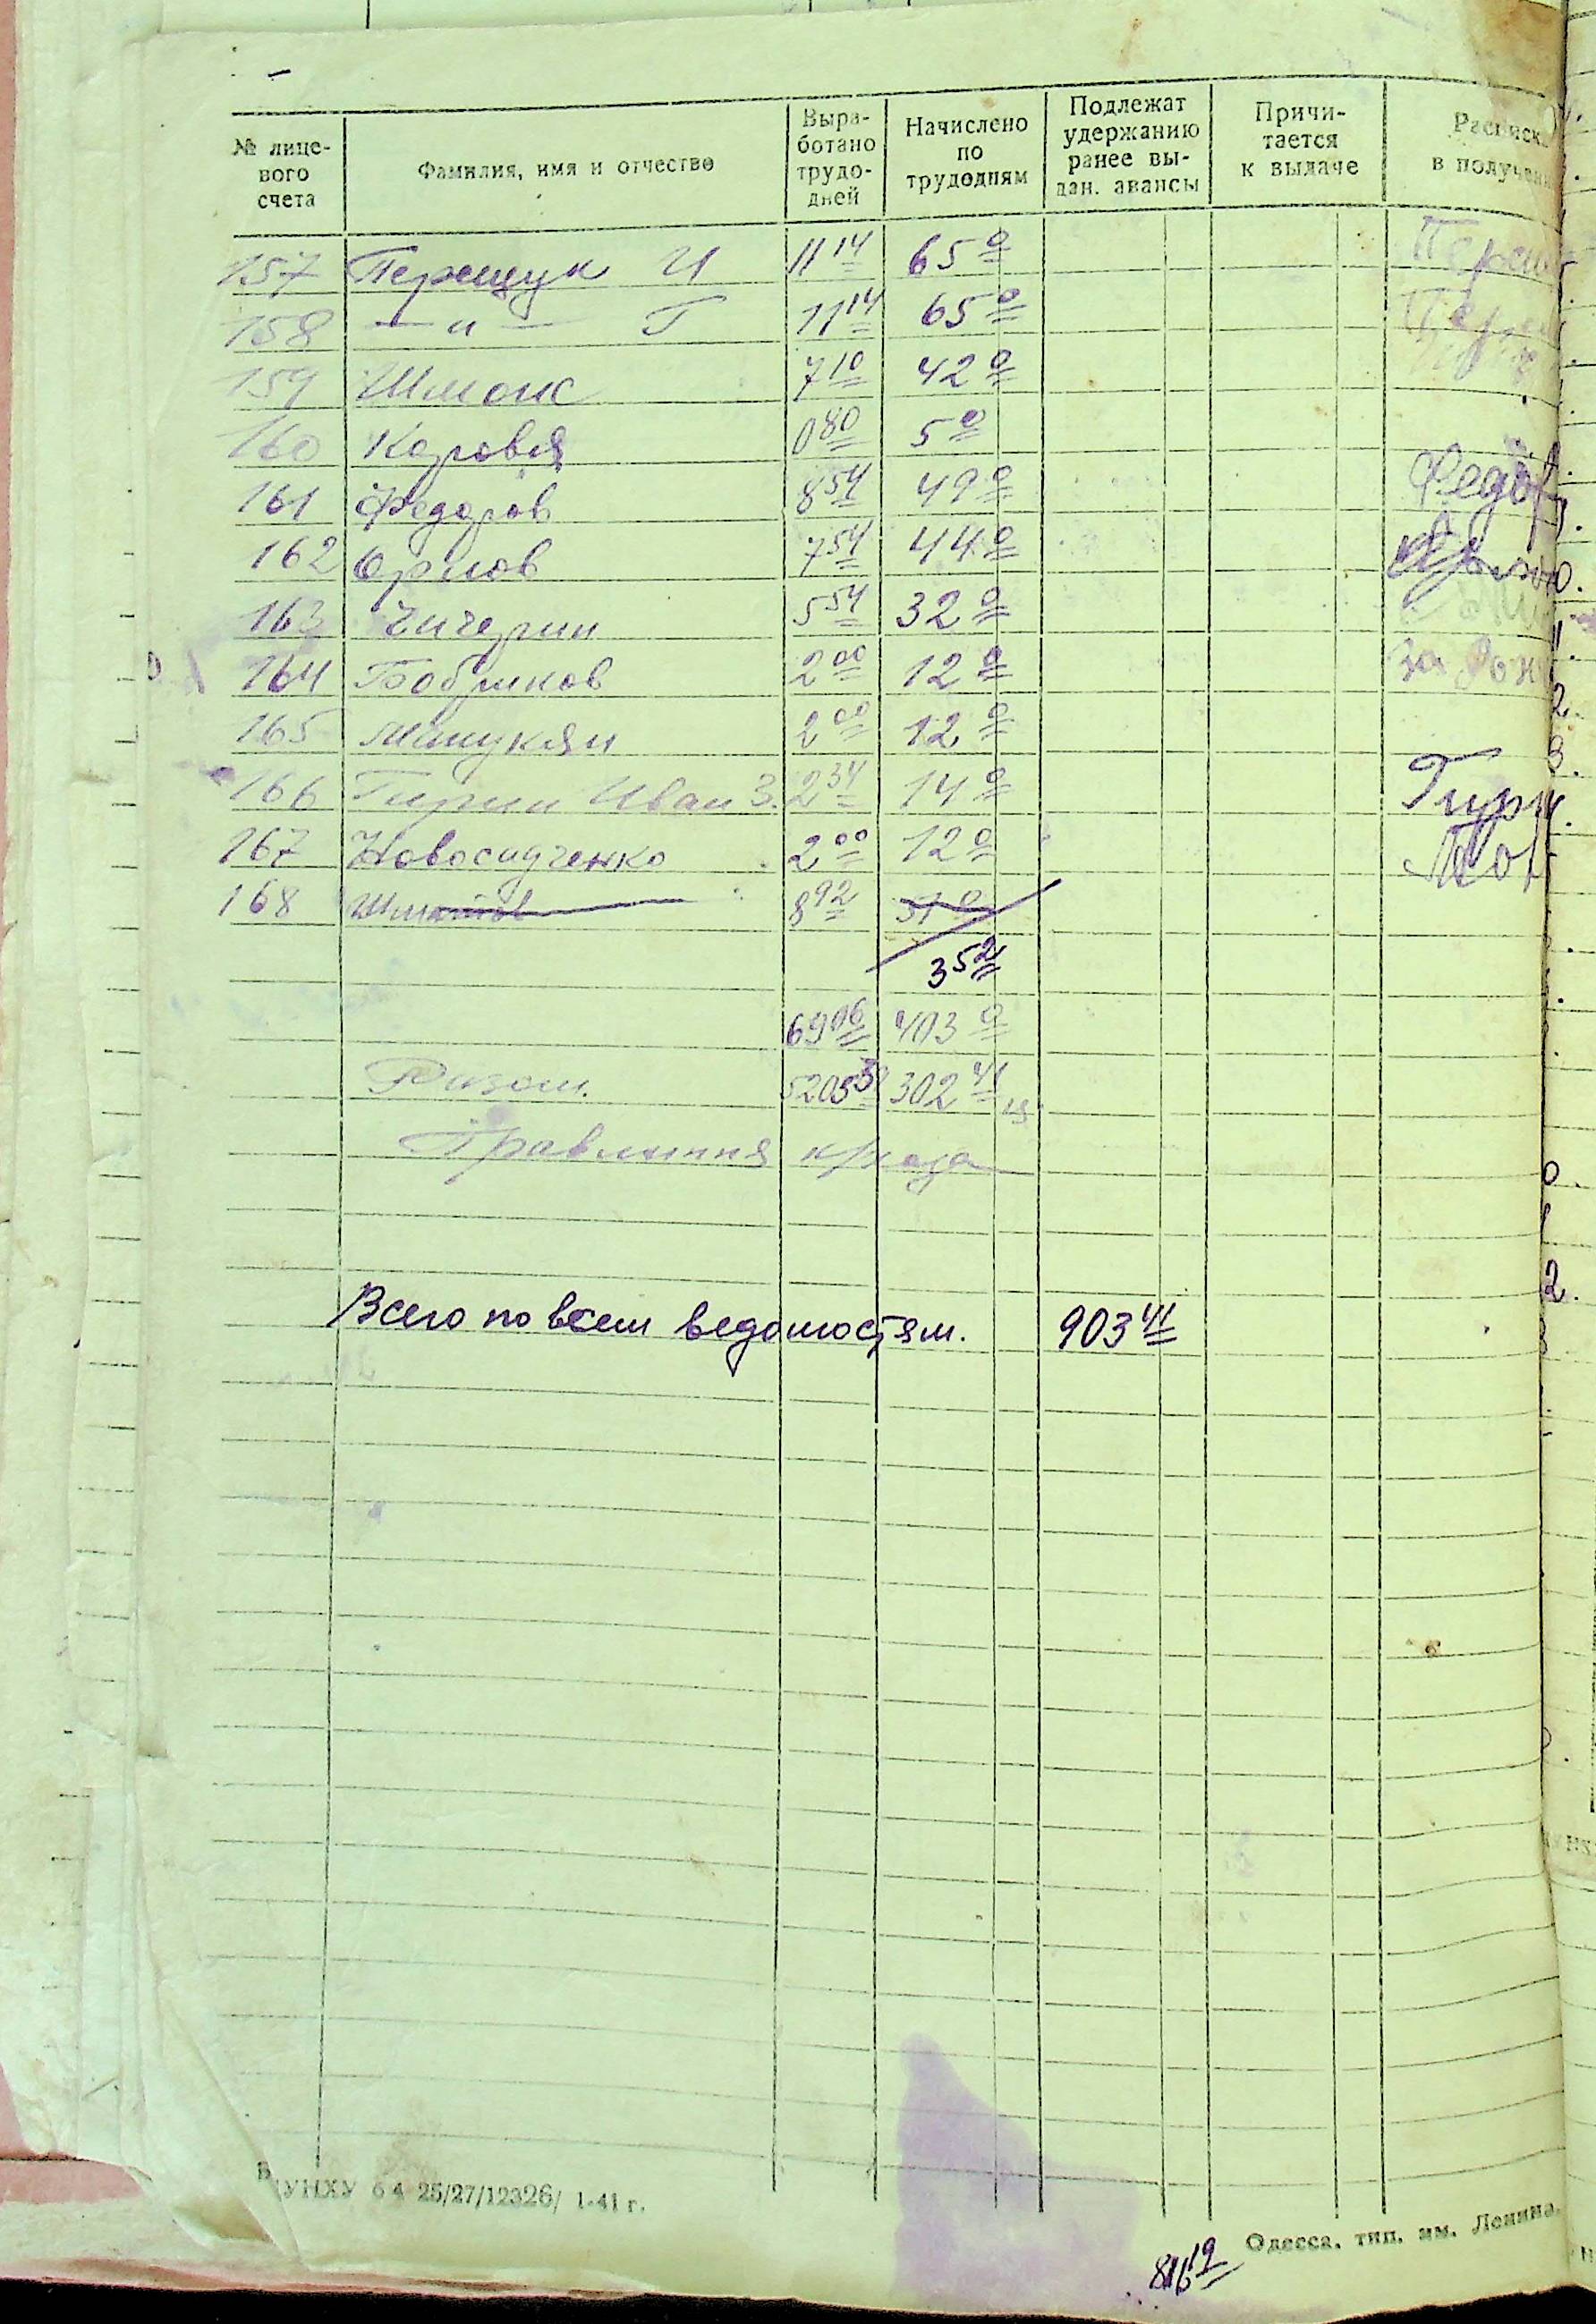 № лице-вого счета | Фамилия, имя и отчество | Выра-ботано трудо-дней | Начислено по трудодням | Подлежат удержанию ранее вы-дан. авансы | Причи-тается к выдаче | Расписк в получен
157 Перещук И 11 14 65 0
158 — „ — Г 11 14 65 0
159 7 10 42 0
160 0 80 5 0
161 Федоров 8 54 49 0 Федор
162 Орлов 7 54 44 0
163 Чичерин 5 54 32 0
164 Бобриков 2 00 12 0 за
165 Манукян 2 00 12 0
166 Гирин Иван З. 2 34 14 0 Гирин
167 Новосидченко 2 00 12 0 Нов
168 8 92 51 0
352
69 06 403 0
Разом. 5203 302 41
Правлиння к/хоза
Всего по всем ведомостям. 903 41
УНХУ 64 25/27/12326/ 1-41 г.
Одесса, тип. им. Ленина.